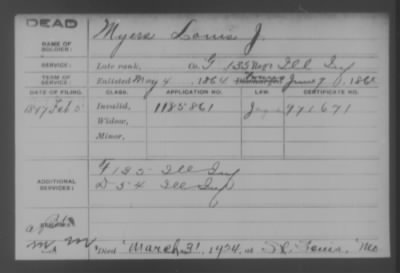 DEAD
NAME OF SOLDIER: Myers Louis J.
SERVICE: Late rank, Co. G 135 Regt Ill Inf
TERM OF SERVICE: Enlisted May 4, 1864 June 7, 186
DATE OF FILING. CLASS. APPLICATION NO. LAW. CERTIFICATE NO.
1897 Feb 5 Invalid, 1185861 971671
Widow,
Minor,
ADDITIONAL SERVICES: F 125 Ill Inf
D 54 Ill Inf
Died March 31, 1924, at St. Louis, Mo